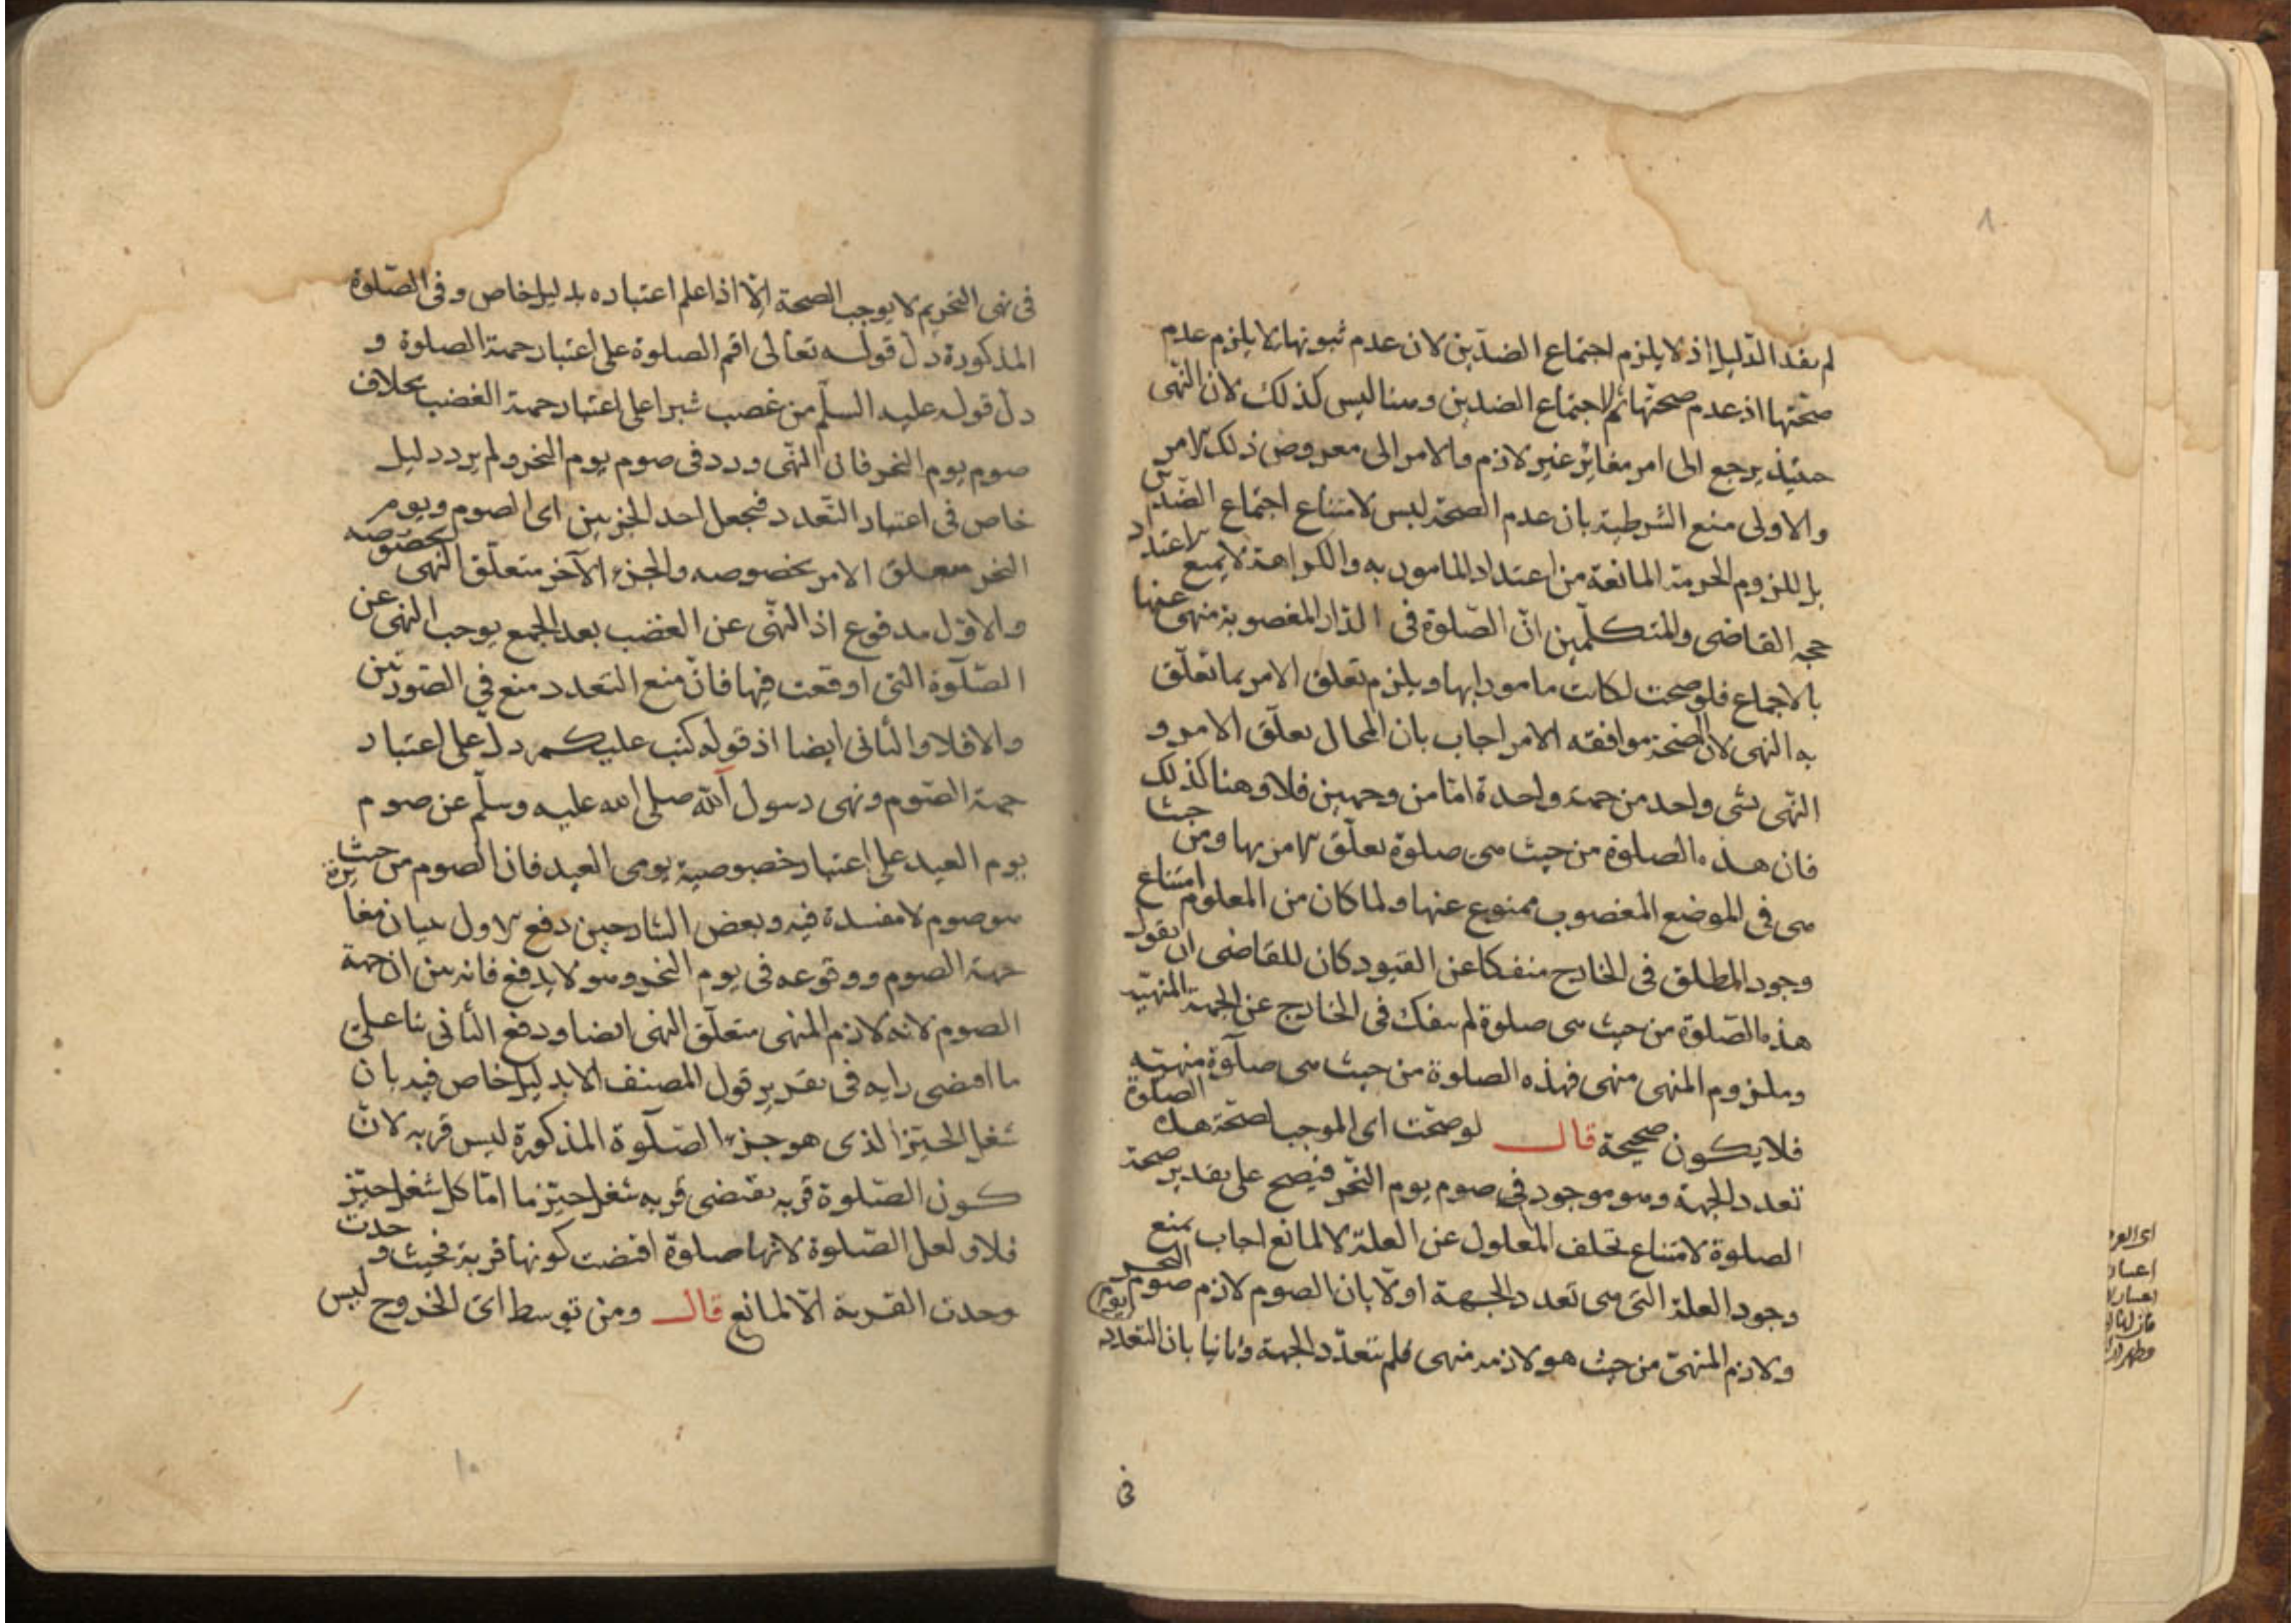 لم يفد الدليل اذ لا يلزم اجتماع الضدين لان عدم ثبوتها لا يلزم عدم
صحتها اذ عدم صحتها لاجتماع الضدين وهنا ليس كذلك لان النهى
حينئذ يرجع الى امر مغاير غير لازم والامر الى معروض ذلك الامر
والاولى منع الشرطية بان عدم الصحة ليس لامتناع اجتماع الضدين
بل للزوم الحرمة المانعة من اعتداد المامور به والكراهة لا يمنع الاعتداد
حجه القاضى والمتكلمين ان الصلوة فى الدار المغصوبة منهى عنها
بالاجماع فلو صحت لكانت مامورا بها ويلزم تعلق الامر بما تعلق
به النهى لان الصحة موافقه الامر اجاب بان المحال تعلق الامر و
النهى بشى واحد من جهة واحدة اما من وجهين فلا وهنا كذلك
فان هذه الصلوة من حيث هى صلوة تعلق الامر بها ومن حيث
هى فى الموضع المغصوب ممنوع عنها ولما كان من المعلوم امتناع
وجود المطلق فى الخارج منفكا عن القيود كان للقاضى ان يقول
هذه الصلوة من حيث هى صلوة لم ينفك فى الخارج عن الجهة المنهية
وملزوم المنهى منهى فهذه الصلوة من حيث هى صلوة منهية
فلا يكون صحيحة قال لو صحت اى الموجب لصحة هذه الصلوة
تعدد الجهة وهو موجود فى صوم يوم النحر فيصح على تقدير صحة
الصلوة لامتناع تخلف المعلول عن العلة لا لمانع اجاب بمنع
وجود العلة التى هى تعدد الجهة اولا بان الصوم لازم صوم يوم النحر
ولازم المنهى من حيث هو لازمه منهى فلم يتعدد الجهة وثانيا بان التعدد
فى
فى نهى التحريم لا يوجب الصحة الا اذا علم اعتباره بدليل خاص وفى الصلوة
المذكورة دل قوله تعالى اقم الصلوة على اعتبار جهة الصلوة و
دل قوله عليه السلم من غصب شبرا على اعتبار جهة الغصب بخلاف
صوم يوم النحر فان النهى ورد فى صوم يوم النحر ولم يرد دليل
خاص فى اعتبار التعدد فيجعل احد الجزيين اى الصوم ويوم
النحر متعلق الامر بخصوصه والجزء الآخر متعلق النهى بخصوصه
والاول مدفوع اذ النهى عن الغصب بعد الجمع يوجب النهى عن
الصلوة التى اوقعت فيها فان منع التعدد منع فى الصورتين
والا فلا والثانى ايضا اذ قوله كتب عليكم دل على اعتبار
جهة الصوم ونهى رسول الله صلى الله عليه وسلم عن صوم
يوم العيد على اعتبار خصوصية يومى العيد فان الصوم من حيث
هو صوم لا مفسدة فيه وبعض الشارحين دفع الاول ببيان مغايرة
جهة الصوم ووقوعه فى يوم النحر وهو لا يدفع فانه بين ان جهة
الصوم لانه لازم المنهى متعلق النهى ايضا ودفع الثانى بناء على
ما اقتضى رايه فى تقرير قول المصنف الا بدليل خاص فيه بان
شغل الحيز الذى هو جزء الصلوة المذكورة ليس قربه لان
كون الصلوة قربه يقتضى قربه شغل حيز ما اما كل شغل حيز
فلا ولعل الصلوة لانها صلوة اقتضت كونها قربة فحيث وجدت
وجدت القربة الا لمانع قال ومن توسط اى الخروج ليس